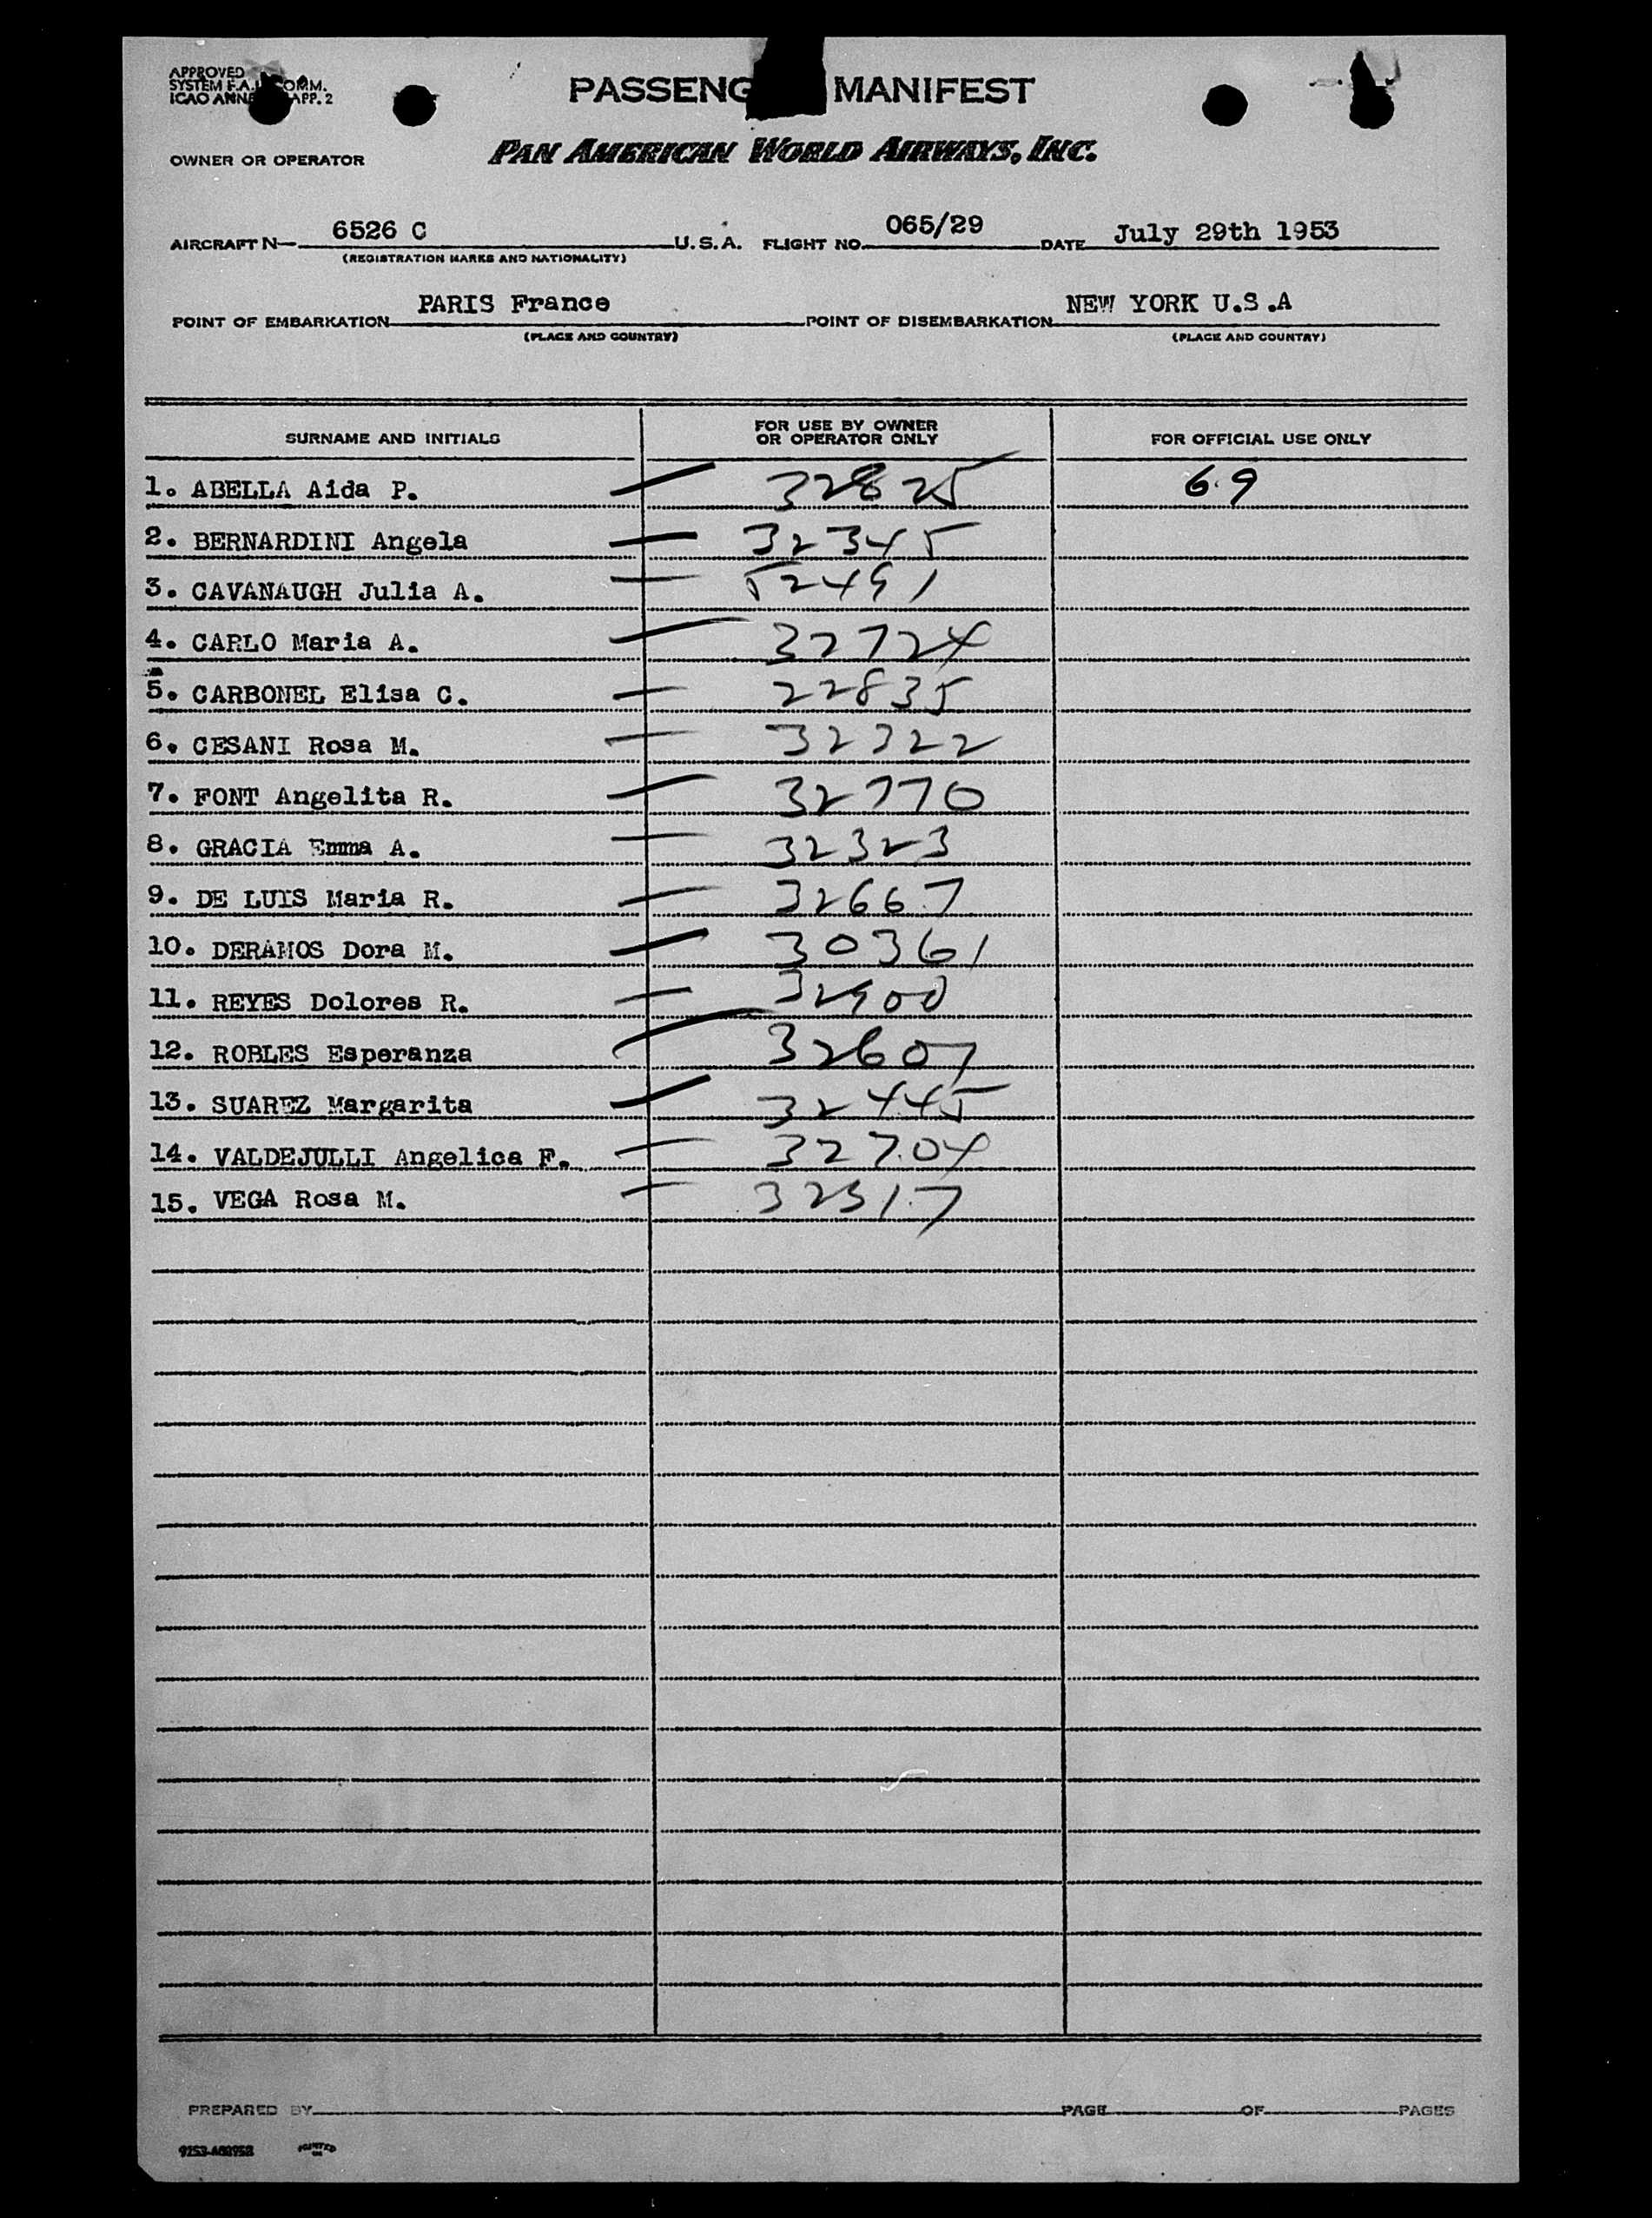 APPROVED
SYSTEM F.A.L. COMM.
ICAO ANNEX APP. 2
PASSENG MANIFEST
OWNER OR OPERATOR PAN AMERICAN WORLD AIRWAYS, INC.
AIRCRAFT N— 6526 C U.S.A. FLIGHT NO. 065/29 DATE July 29th 1953
(REGISTRATION MARKS AND NATIONALITY)
POINT OF EMBARKATION PARIS France POINT OF DISEMBARKATION NEW YORK U.S.A
(PLACE AND COUNTRY) (PLACE AND COUNTRY)
SURNAME AND INITIALS FOR USE BY OWNER OR OPERATOR ONLY FOR OFFICIAL USE ONLY
1. ABELLA Aida P. 32825 6.9
2. BERNARDINI Angela 32345
3. CAVANAUGH Julia A. 52491
4. CARLO Maria A. 32724
5. CARBONEL Elisa C. 22835
6. CESANI Rosa M. 32322
7. FONT Angelita R. 32770
8. GRACIA Emma A. 32323
9. DE LUIS Maria R. 32667
10. DERAMOS Dora M. 30361
11. REYES Dolores R. 32900
12. ROBLES Esperanza 32607
13. SUAREZ Margarita 32445
14. VALDEJULLI Angelica F. 32704
15. VEGA Rosa M. 32317
PREPARED BY PAGE OF PAGES